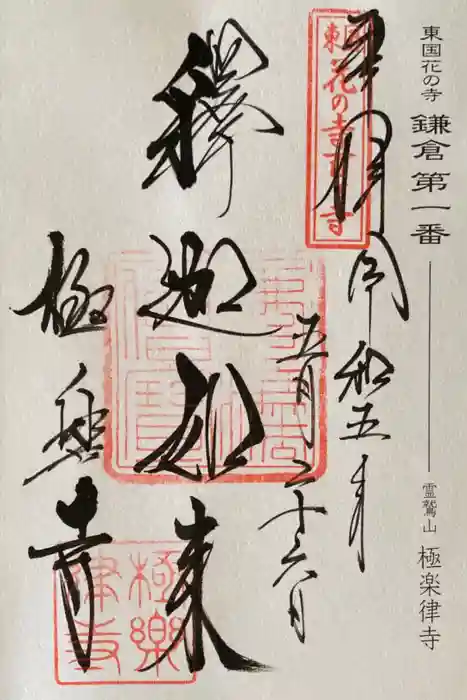 東国花の寺 鎌倉第一番
霊鷲山 極楽律寺
東国花の寺百ヶ寺
奉拝 令和五年
五月二十六日
釋迦如来
極楽寺
極樂律寺